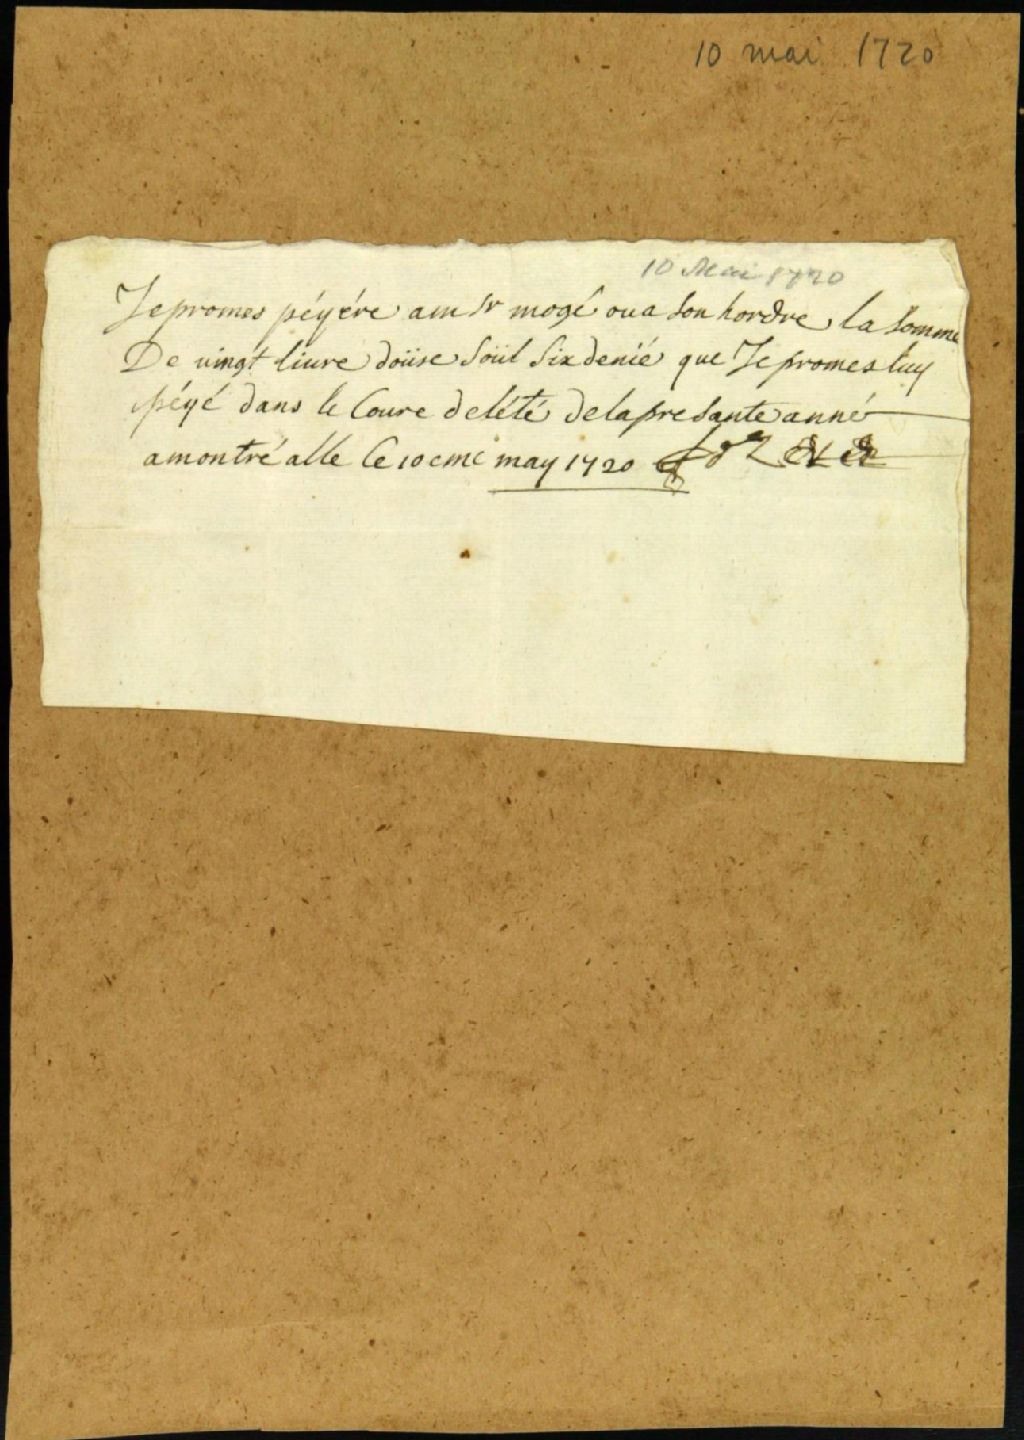 10 mai 1720
10 Mai 1720
Je promes péyére a m Sr mogé ou a son hordre la somme
De vingt liure doüse soüil six denié que Je promes luy
péyé dans le Coure de lété de la presante anné
a montré alle le 10 eme may 1720